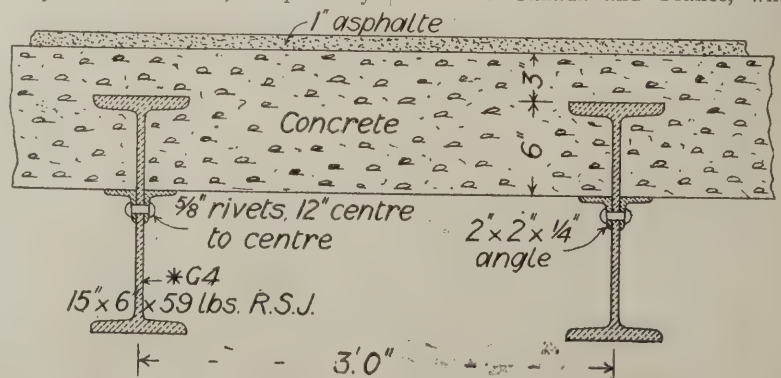 1" asphalte
3"
Concrete
6"
5/8" rivets, 12" centre
to centre
2" x 2" x 1/4"
angle
*G4
15" x 6" x 59 lbs. R.S.J.
3'.0"